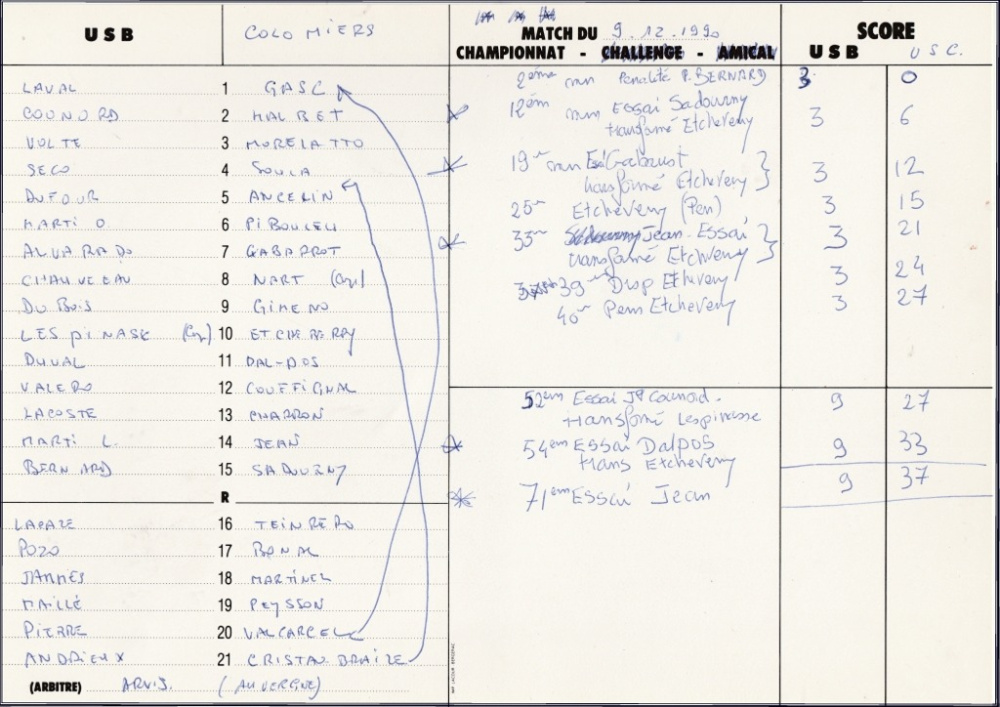 USB COLOMIERS
MATCH DU 9.12.1990
CHAMPIONNAT - CHALLENGE - AMICAL
SCORE
USB U S C.
LAVAL 1 GASC
COUNORD 2 MALBET
VOLTE 3 MORELATTO
SECO 4 SOULA
DUFOUR 5 ANCELIN
MARTI O 6 PIBOULEU
ALVARADO 7 GABARROT
CHAUVEAU 8 NART (Cap)
DUBOIS 9 GIMENO
LESPINASE (Cap) 10 ETCHEBERRY
DUVAL 11 DAL-POS
VALERO 12 COUFFIGNAL
LACOSTE 13 CHARRON
MARTI L. 14 JEAN
BERNARD 15 SADOURNY
R
LAPAZE 16 TEINRERO
POZO 17 BONAL
JAMMES 18 MARTINEL
MAILLÉ 19 PEYSSON
PIERRE 20 VALCARCEL
ANDRIEUX 21 CRISTAU BRAIZE
(ARBITRE) ARVIS. (AUVERGNE)
2ème mn Penalité P. BERNARD 3 0
12èm mn ESSAI Sadourny
transformé Etcheverry 3 6
19 mn Essai Gabaust
transformé Etcheverry 3 12
25 Etcheverry (Pen) 3 15
33 Jean Essai
transformé Etcheverry 3 21
39 Drop Etcheverry 3 24
40 Penn Etcheverry 3 27
52em Essai JP Counord.
transformé Lespinasse 9 27
54em ESSAI Dalpos
trans Etcheverry 9 33
71em ESSAI Jean 9 37